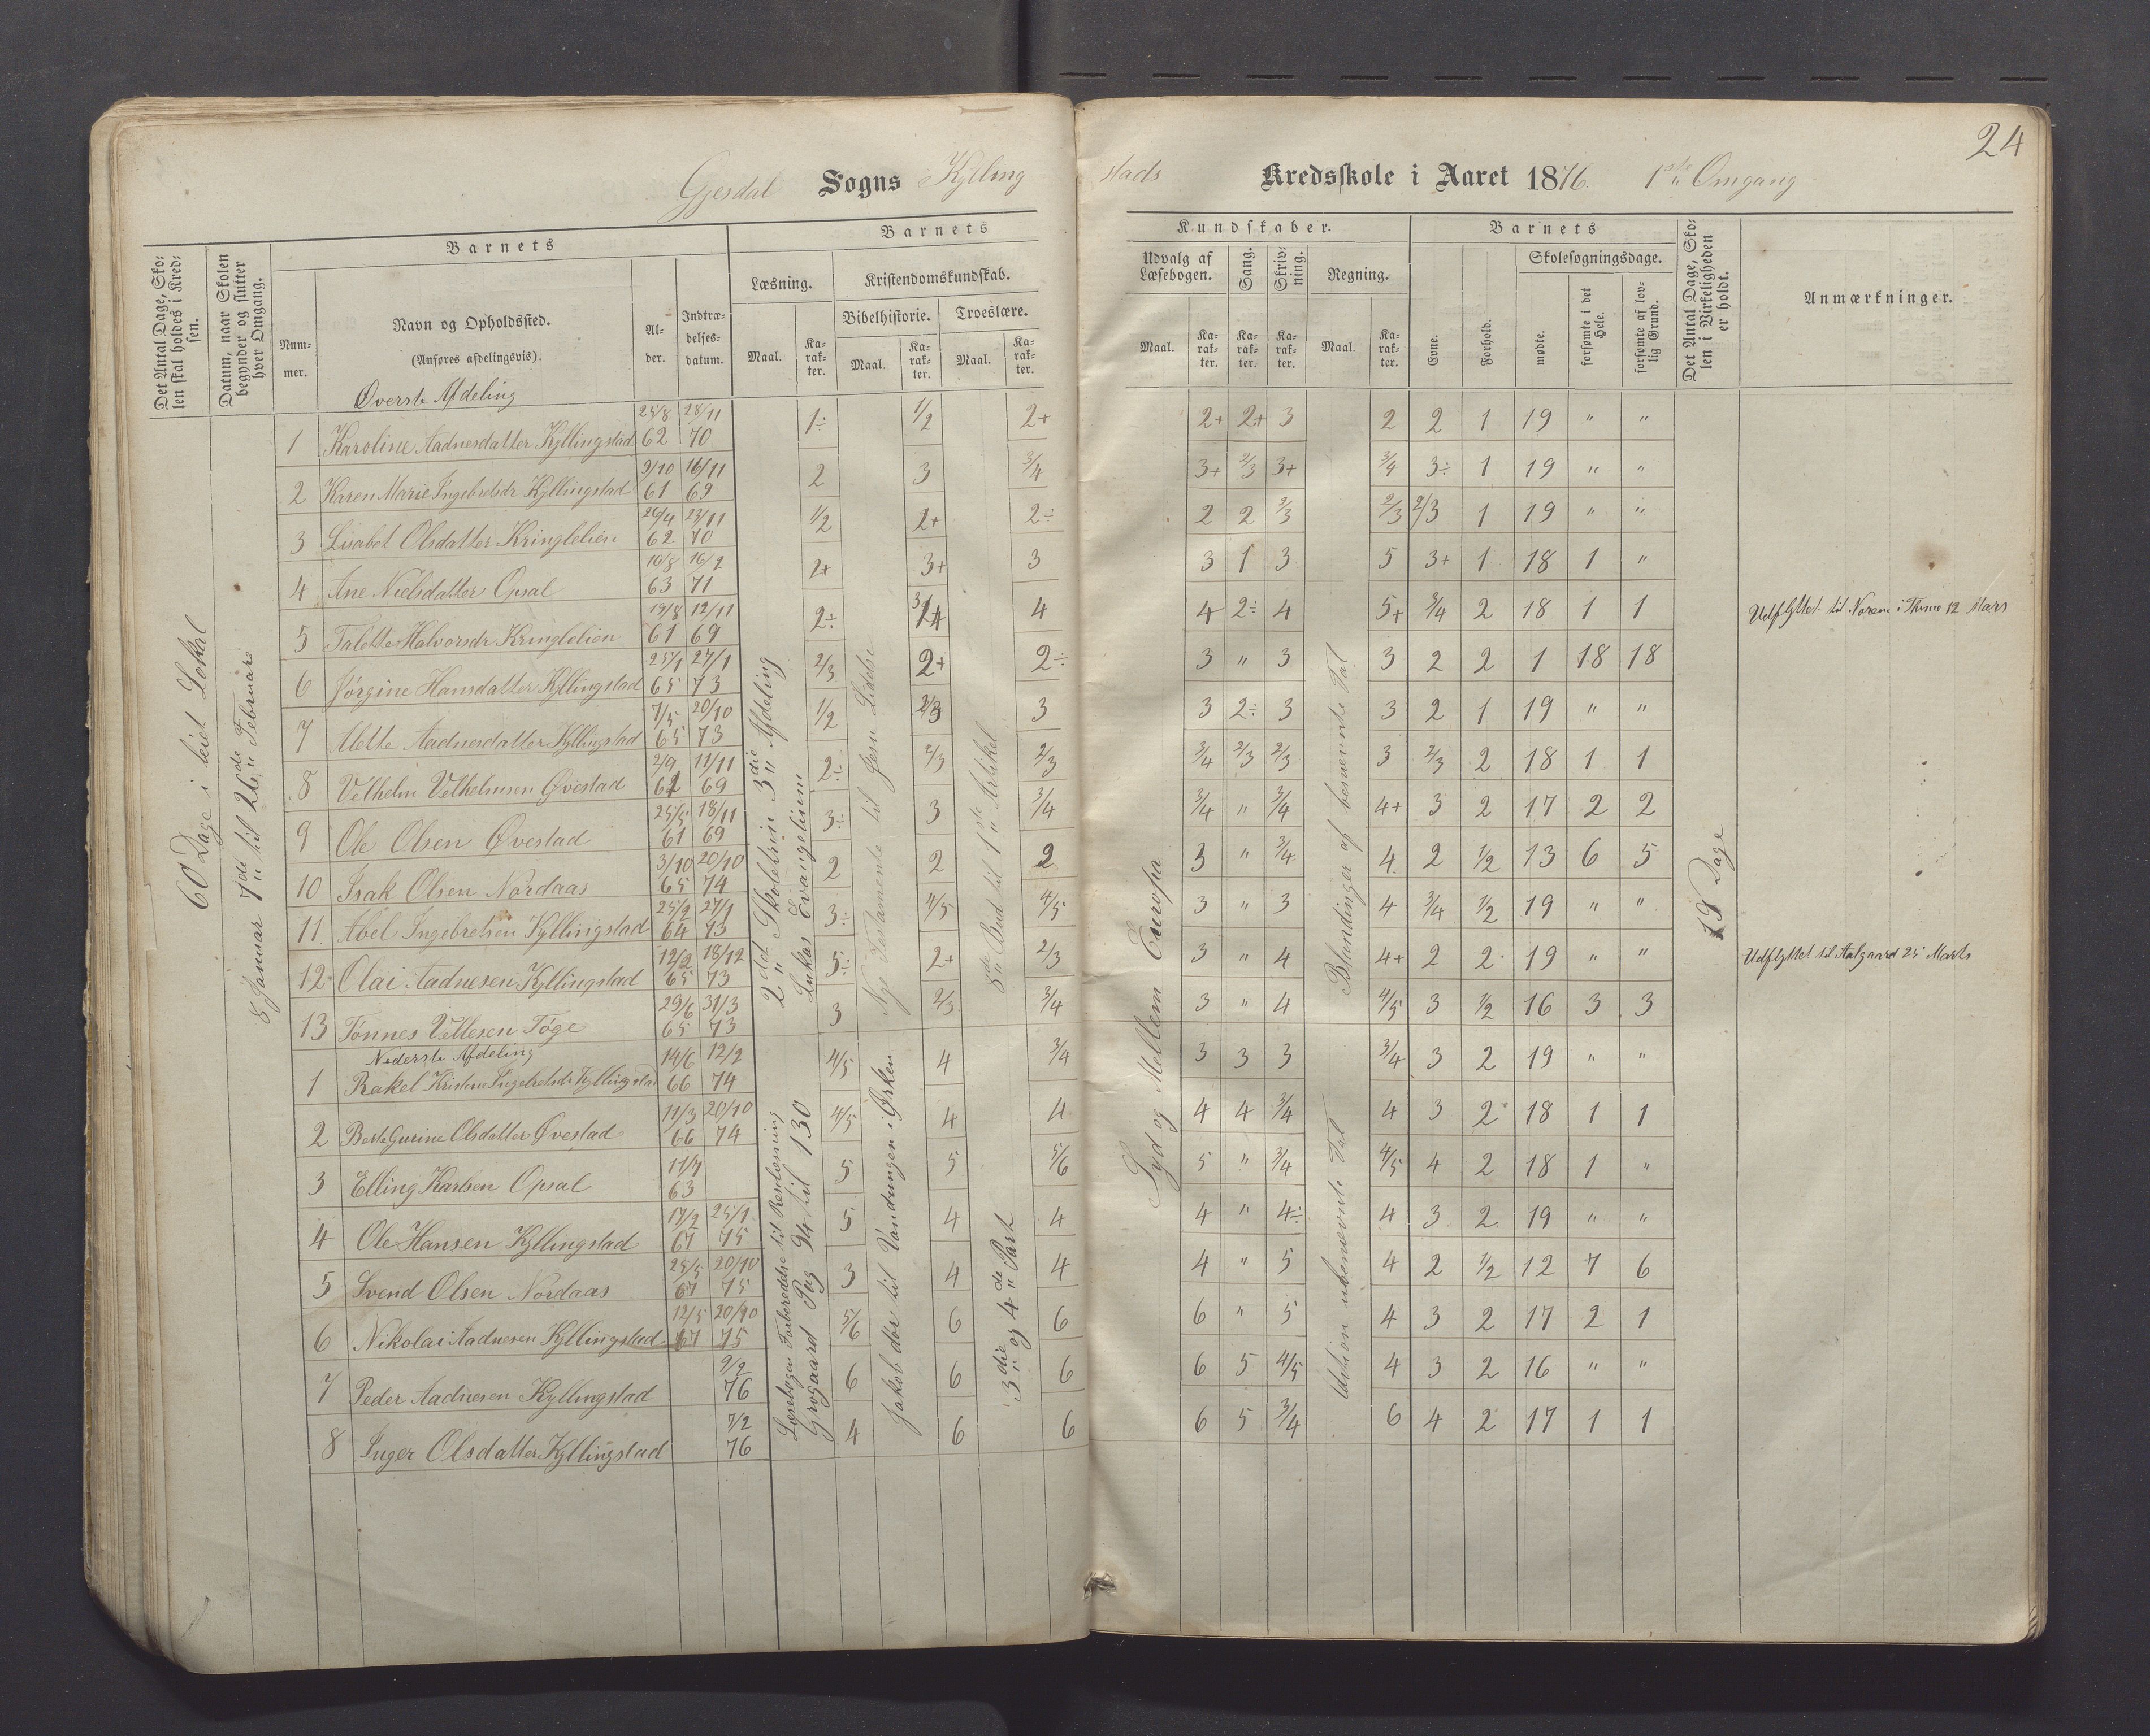 24
Gjesdal Sogns Kylling stads Kredsskole i Aaret 1876. 1ste Omgang
Det Antal Dage, Skolen skal holdes i Kredsen.
Datum, naar Skolen begynder og slutter hver Omgang.
Barnets
Nummer.
Navn og Opholdssted.
(Anføres afdelingsvis).
Alder.
Indtrædelsesdatum.
Barnets
Læsning.
Maal.
Karakter.
Kristendomskundskab.
Bibelhistorie.
Maal.
Karakter.
Troeslære.
Maal.
Karakter.
Kundskaber.
Udvalg af Læsebogen.
Maal.
Karakter.
Sang.
Karakter.
Skrivning.
Karakter.
Regning.
Maal.
Karakter.
Barnets
Evne.
Forhold.
Skolesøgningsdage.
mødte.
forsømte i det Hele.
forsømte af lovlig Grund.
Det Antal Dage, Skolen i Virkeligheden er holdt.
Anmærkninger.
60 Dage i leiet Lokal
8 Januar 7de til 26de Februar
Øverste Afdeling
1 Karoline Aadnesdatter Kyllingstad 25/8 62 28/11 70 1÷ 1/2 2+ 2+ 2+ 3 2 2 1 19 " "
2 Karen Marie Ingebretsdr Kyllingstad 9/10 61 16/11 69 2 3 3/4 3+ 2/3 3+ 3/4 3÷ 1 19 " "
3 Lisabet Olsdatter Kringlelien 26/4 62 23/11 70 1/2 2+ 2÷ 2 2 2/3 2/3 2/3 1 19 " "
4 Ane Nielsdatter Opsal 10/8 63 16/2 71 2+ 3+ 3 3 1 3 5 3+ 1 18 1 "
5 Talette Halvorsdr Kringlelien 19/8 61 12/11 69 2÷ 3/4 4 4 2÷ 4 5+ 3/4 2 18 1 1 Udflyttet til Norem i Thime 12 Mars
6 Jørgine Hansdatter Kyllingstad 25/1 65 27/1 73 2/3 2+ 2÷ 3 " 3 3 2 2 1 18 18
7 Mette Aadnesdatter Kyllingstad 7/5 65 20/10 73 1/2 2/3 3 3 2÷ 3 3 2 1 19 " "
8 Velhelm Velhelmsen Øvestad 2/9 62 11/11 69 2÷ 2/3 2/3 3/4 2/3 2/3 3 2/3 2 18 1 1
9 Ole Olsen Øvestad 25/5 61 18/11 69 3÷ 3 3/4 3/4 " 3/4 4+ 3 2 17 2 2
10 Isak Olsen Nordaas 3/10 65 20/10 74 2 2 2 3 " 3/4 4 2 1/2 13 6 5
11 Abel Ingebretsen Kyllingstad 25/2 64 27/1 73 3÷ 4/5 4/5 3 " 3 4 3/4 1/2 19 " "
12 Olai Aadnesen Kyllingstad 12/2 65 18/12 73 5÷ 2+ 2/3 3 " 4 4+ 2 2 19 " " Udflyttet til Aalgaard 25 Marts
13 Tønnes Vellesen Tøge 29/6 65 31/3 73 3 2/3 3/4 3 " 4 4/5 3 1/2 16 3 3
Nederste Afdeling
1 Rakel Kristine Ingebretsdr Kyllingstad 14/6 66 12/2 74 4/5 4 3/4 3 3 3 3/4 3 2 19 " "
2 Berte Gurine Olsdatter Øvestad 11/3 66 20/10 74 4/5 4 4 4 4 3/4 4 3 2 18 1 1
3 Elling Karlsen Opsal 11/7 63 5 5 5/6 5 " 3/4 4/5 4 2 18 1 "
4 Ole Hansen Kyllingstad 17/2 67 25/1 75 5 4 4 4 " 4÷ 4 3 2 19 " "
5 Svend Olsen Nordaas 25/5 67 20/10 75 3 4 4 4 " 5 4 2 1/2 12 7 6
6 Nikolai Aadnesen Kyllingstad 12/5 67 20/10 75 5/6 6 6 6 " 5 4 3 2 17 2 1
7 Peder Aadnesen Kyllingstad 9/2 76 6 6 6 6 5 4/5 4 3 2 16 " "
8 Inger Olsdatter Kyllingstad 7/2 76 4 6 6 6 5 3/4 6 4 2 17 1 1
2det Skoletrin 3die Afdeling
Lukas Evangelium
Læsebogen Forberedelse til Reenlæsning
Grøgaard Pag 94 til 130
Nye Testamente til Jesu Lidelse
Jakobs død til Vandringen i Ørken
8de Bud til 1ste Artikkel
3die og 4de Part
Syd og Mellem Europa
Blandinger af benævnte Tal
Addition ubenævnte Tal
19 Dage